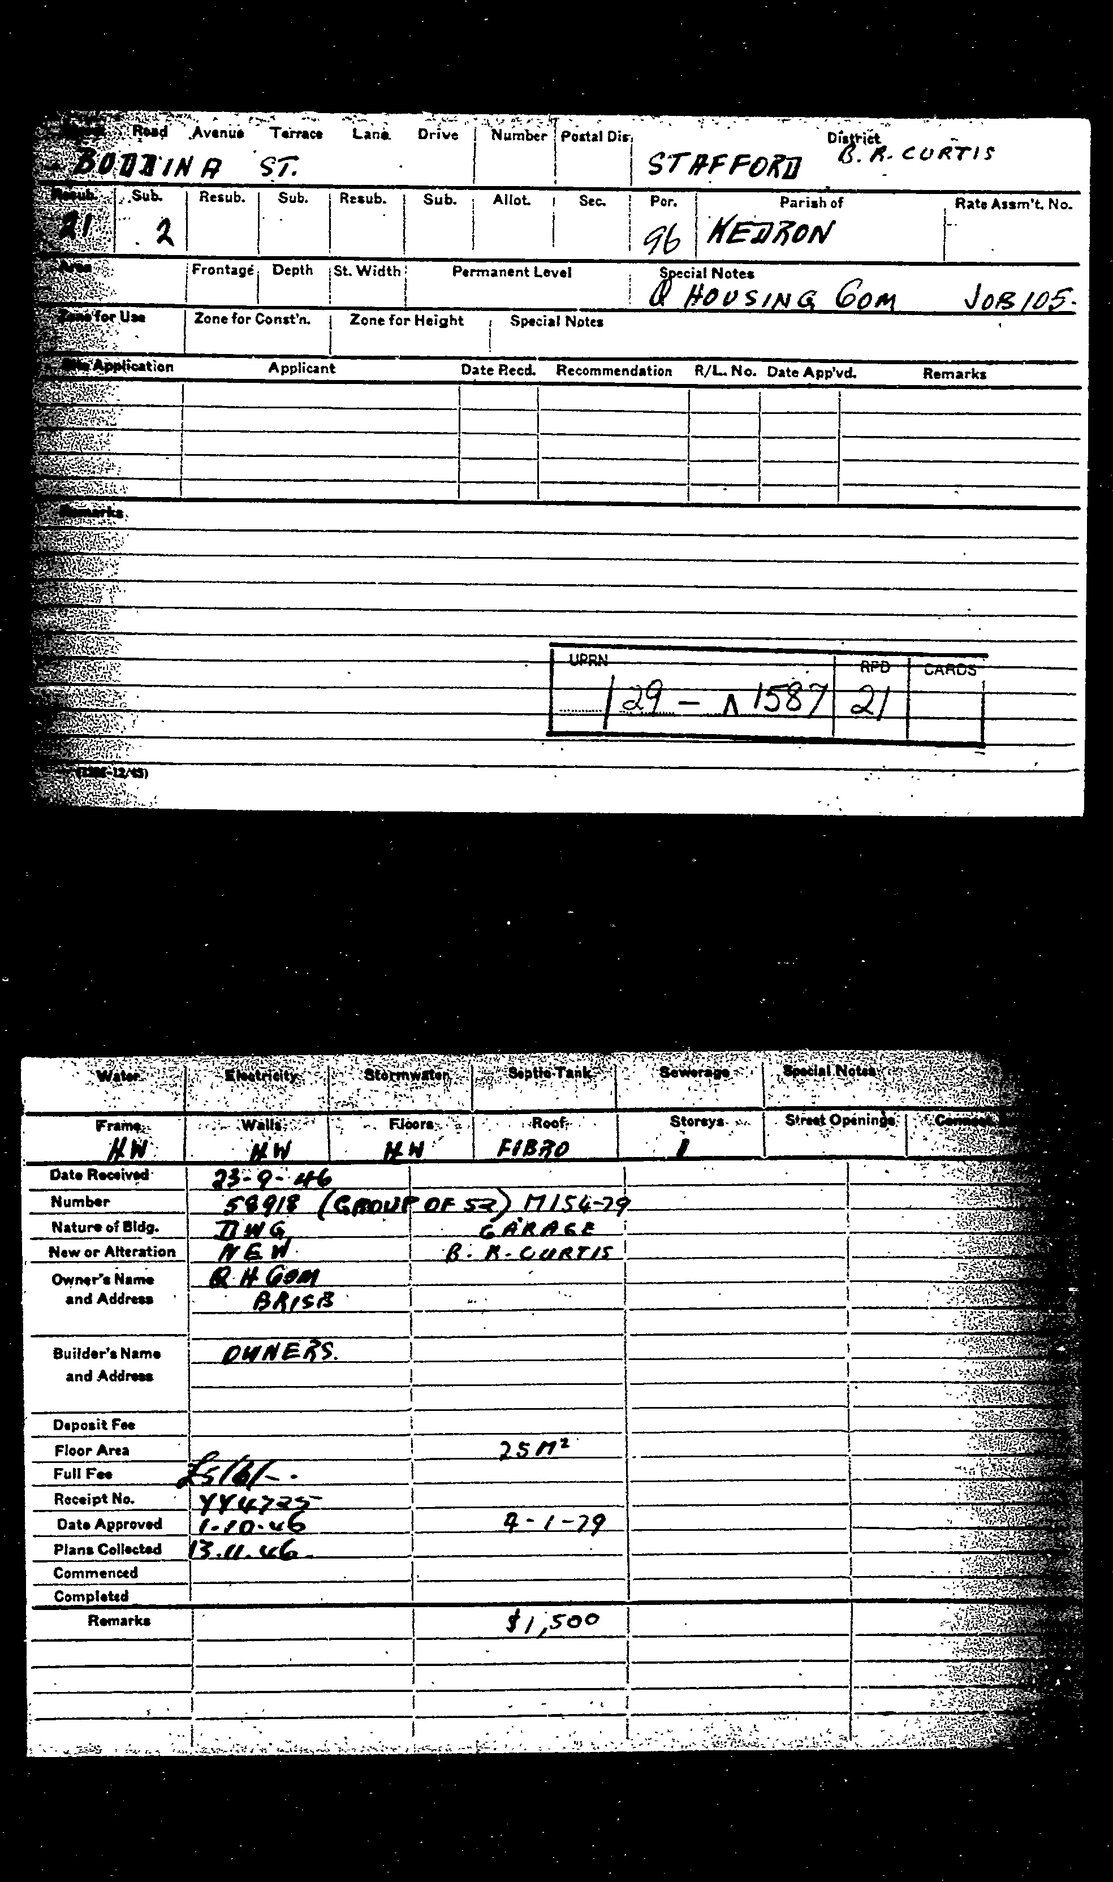 Street Road Avenue Terrace Lane Drive Number Postal Dis. District
BODDINA ST. STAFFORD B. R. CURTIS
Resub. Sub. Resub. Sub. Resub. Sub. Allot. Sec. Por. Parish of Rate Assm't. No.
21 2 96 KEDRON
Area Frontage Depth St. Width Permanent Level Special Notes
Q HOUSING COM JOB 105.
Zone for Use Zone for Const'n. Zone for Height Special Notes
Site Application Applicant Date Recd. Recommendation R/L. No. Date App'vd. Remarks
Remarks
UPRN RPD CARDS
29 - 1587 21
Water Electricity Stormwater Septic Tank Sewerage Special Notes
Frame Walls Floors Roof Storeys Street Openings
H.W H.W H.W FIBRO 1
Date Received 23-9-46
Number 58918 (GROUP OF 52) M154-79
Nature of Bldg. DWG GARAGE
New or Alteration NEW B. R. CURTIS
Owner's Name Q H COM
and Address BRISB
Builder's Name OWNERS.
and Address
Deposit Fee
Floor Area 25M²
Full Fee £5/6/-.
Receipt No. YY4725
Date Approved 1-10-46 4-1-79
Plans Collected 13.11.46.
Commenced
Completed
Remarks $1,500